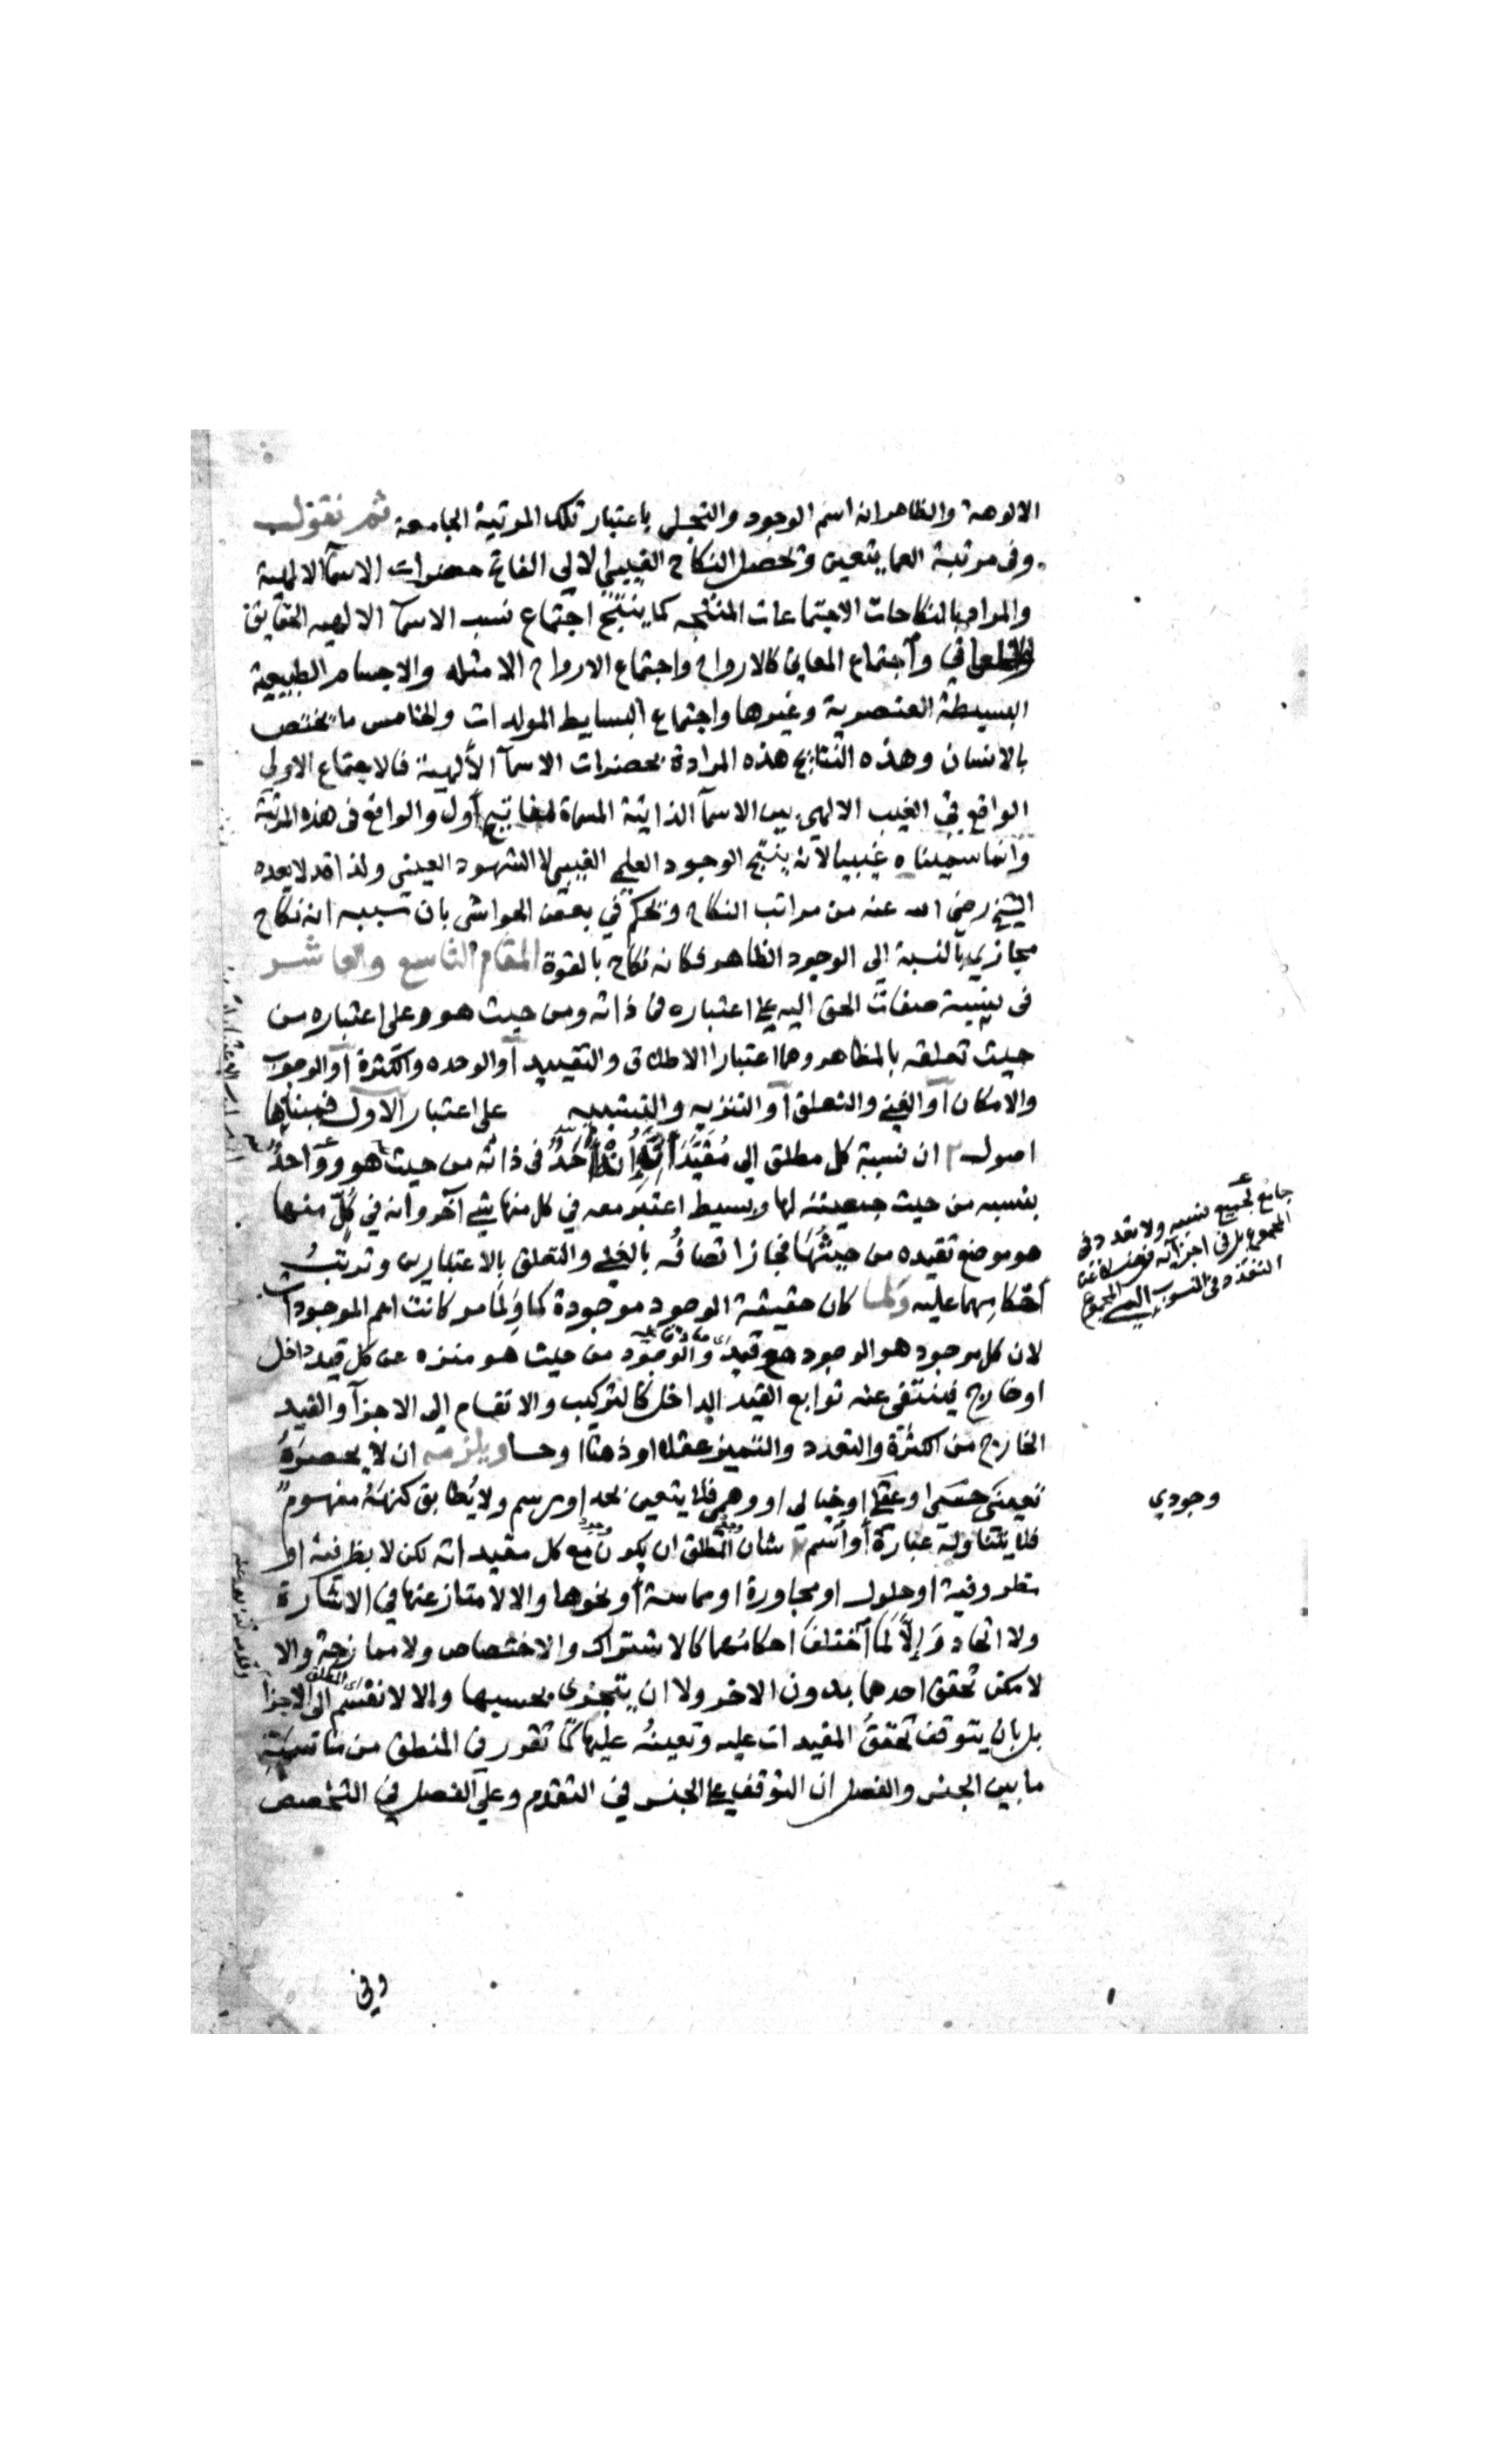 الالوهة والظاهر انه اسم الوجود والتجلي باعتبار تلك المرتبة الجامعة ثم نقول
وفى مرتبة العما يتعين وتحصل النكاح الغيبي الاولي الفاتح حضرات الاسمآ الالهية
والمراد بالنكاحات الاجتماعات المنتجه كما ينتج اجتماع نسب الاسمآ الالهيه الحقايق
واجتماع المعاني كالارواح واجتماع الارواح الامثله والاجسام الطبيعية
البسيطة العنصرية وغيرها واجتماع البسايط المولدات والخامس ما يختص
بالانسان وهذه النتايج هذه المرادة بحضرات الاسمآ الالهية فالاجتماع الاولي
الواقع في الغيب الالهي بين الاسمآ الذاتية المسماة مفاتيح أول والواقع فى هذه المرتبة
وانما سميناه غيبيا لانه ينتج الوجود العلمي الغيبي لا الشهود العيني ولذا قد لا يعده
الشيخ رضي الله عنه من مراتب النكاح ونحكم في بعض الحواشى بان تسببه انه نكاح
مجازي بالنسبة الى الوجود الظاهر فكانه نكاح بالقوة المقام التاسع والعاشر
فى نسبة صفات الحق اليه على اعتباره فى ذاته ومن حيث هو وعلى اعتباره من
حيث تعلقه بالمظاهر وهما اعتبارا الاطلاق والتقييد أو الوحده والكثرة أو الوجوب
والامكان أو الغنى والتعلق أو التنزيه والتشبيه على اعتبار الاول فبيناها
اصول ان نسبة كل مطلق الي مقيد أَحَدٌ فى ذاته من حيث هو وواحد
بنسبه من حيث جمعيته لها وبسيط اعتبر معه في كل منها شي آخر وانه في كل منها
هو موضع تقيده من حيثها فجاز اتصافه بالغنى والتعلق بالاعتبارين وترتب
أحكامهما عليه ولما كان حقيقة الوجود موجودة كما ولما مر كانت اعم الموجودات
لان كل موجود هو الوجود مع قيد والوجود من حيث هو منزه عن كل قيد داخل
او خارج فينتفى عنه توابع القيد الداخل كالتركيب والانقسام الى الاجزآ والقيد
الخارج من الكثرة والتعدد والتميز عقلا او ذهنا او حسا ويلزمه ان لا يحصره
تعين حسي او عقلي او خيالي او وهمي فلا يتعين بحد او برسم ولا يطابق كنهه مفهوم
فلا يتناوله عبارة أو اسم شان المطلق ان يكون مع كل مقيداته لكن لا بظرفية او
مظروفية او حلول او مجاورة او مماسة أو نحوها والا لامتاز عنها في الاشارة
ولا اتحاد وَإِلَّا لما اختلف احكامهما كالاشتراك والاختصاص ولا ممازجة والا
لامكن تحقق احدهما بدون الاخر ولا ان يتجزى بحسبها والا لانقسم الى الاجزا
بل بان يتوقف تحقق المقيدات عليه وتعينه عليها كما تقرر في المنطق من
ما بين الجنس والفصل ان التوقف على الجنس في التقدم وعلي الفصل في التخصص
وفي
جامع لجميع نسبه ولا تعدد فى
المجموع بل في اجزآئه
التعدد فى النسب المجموع
وجودي